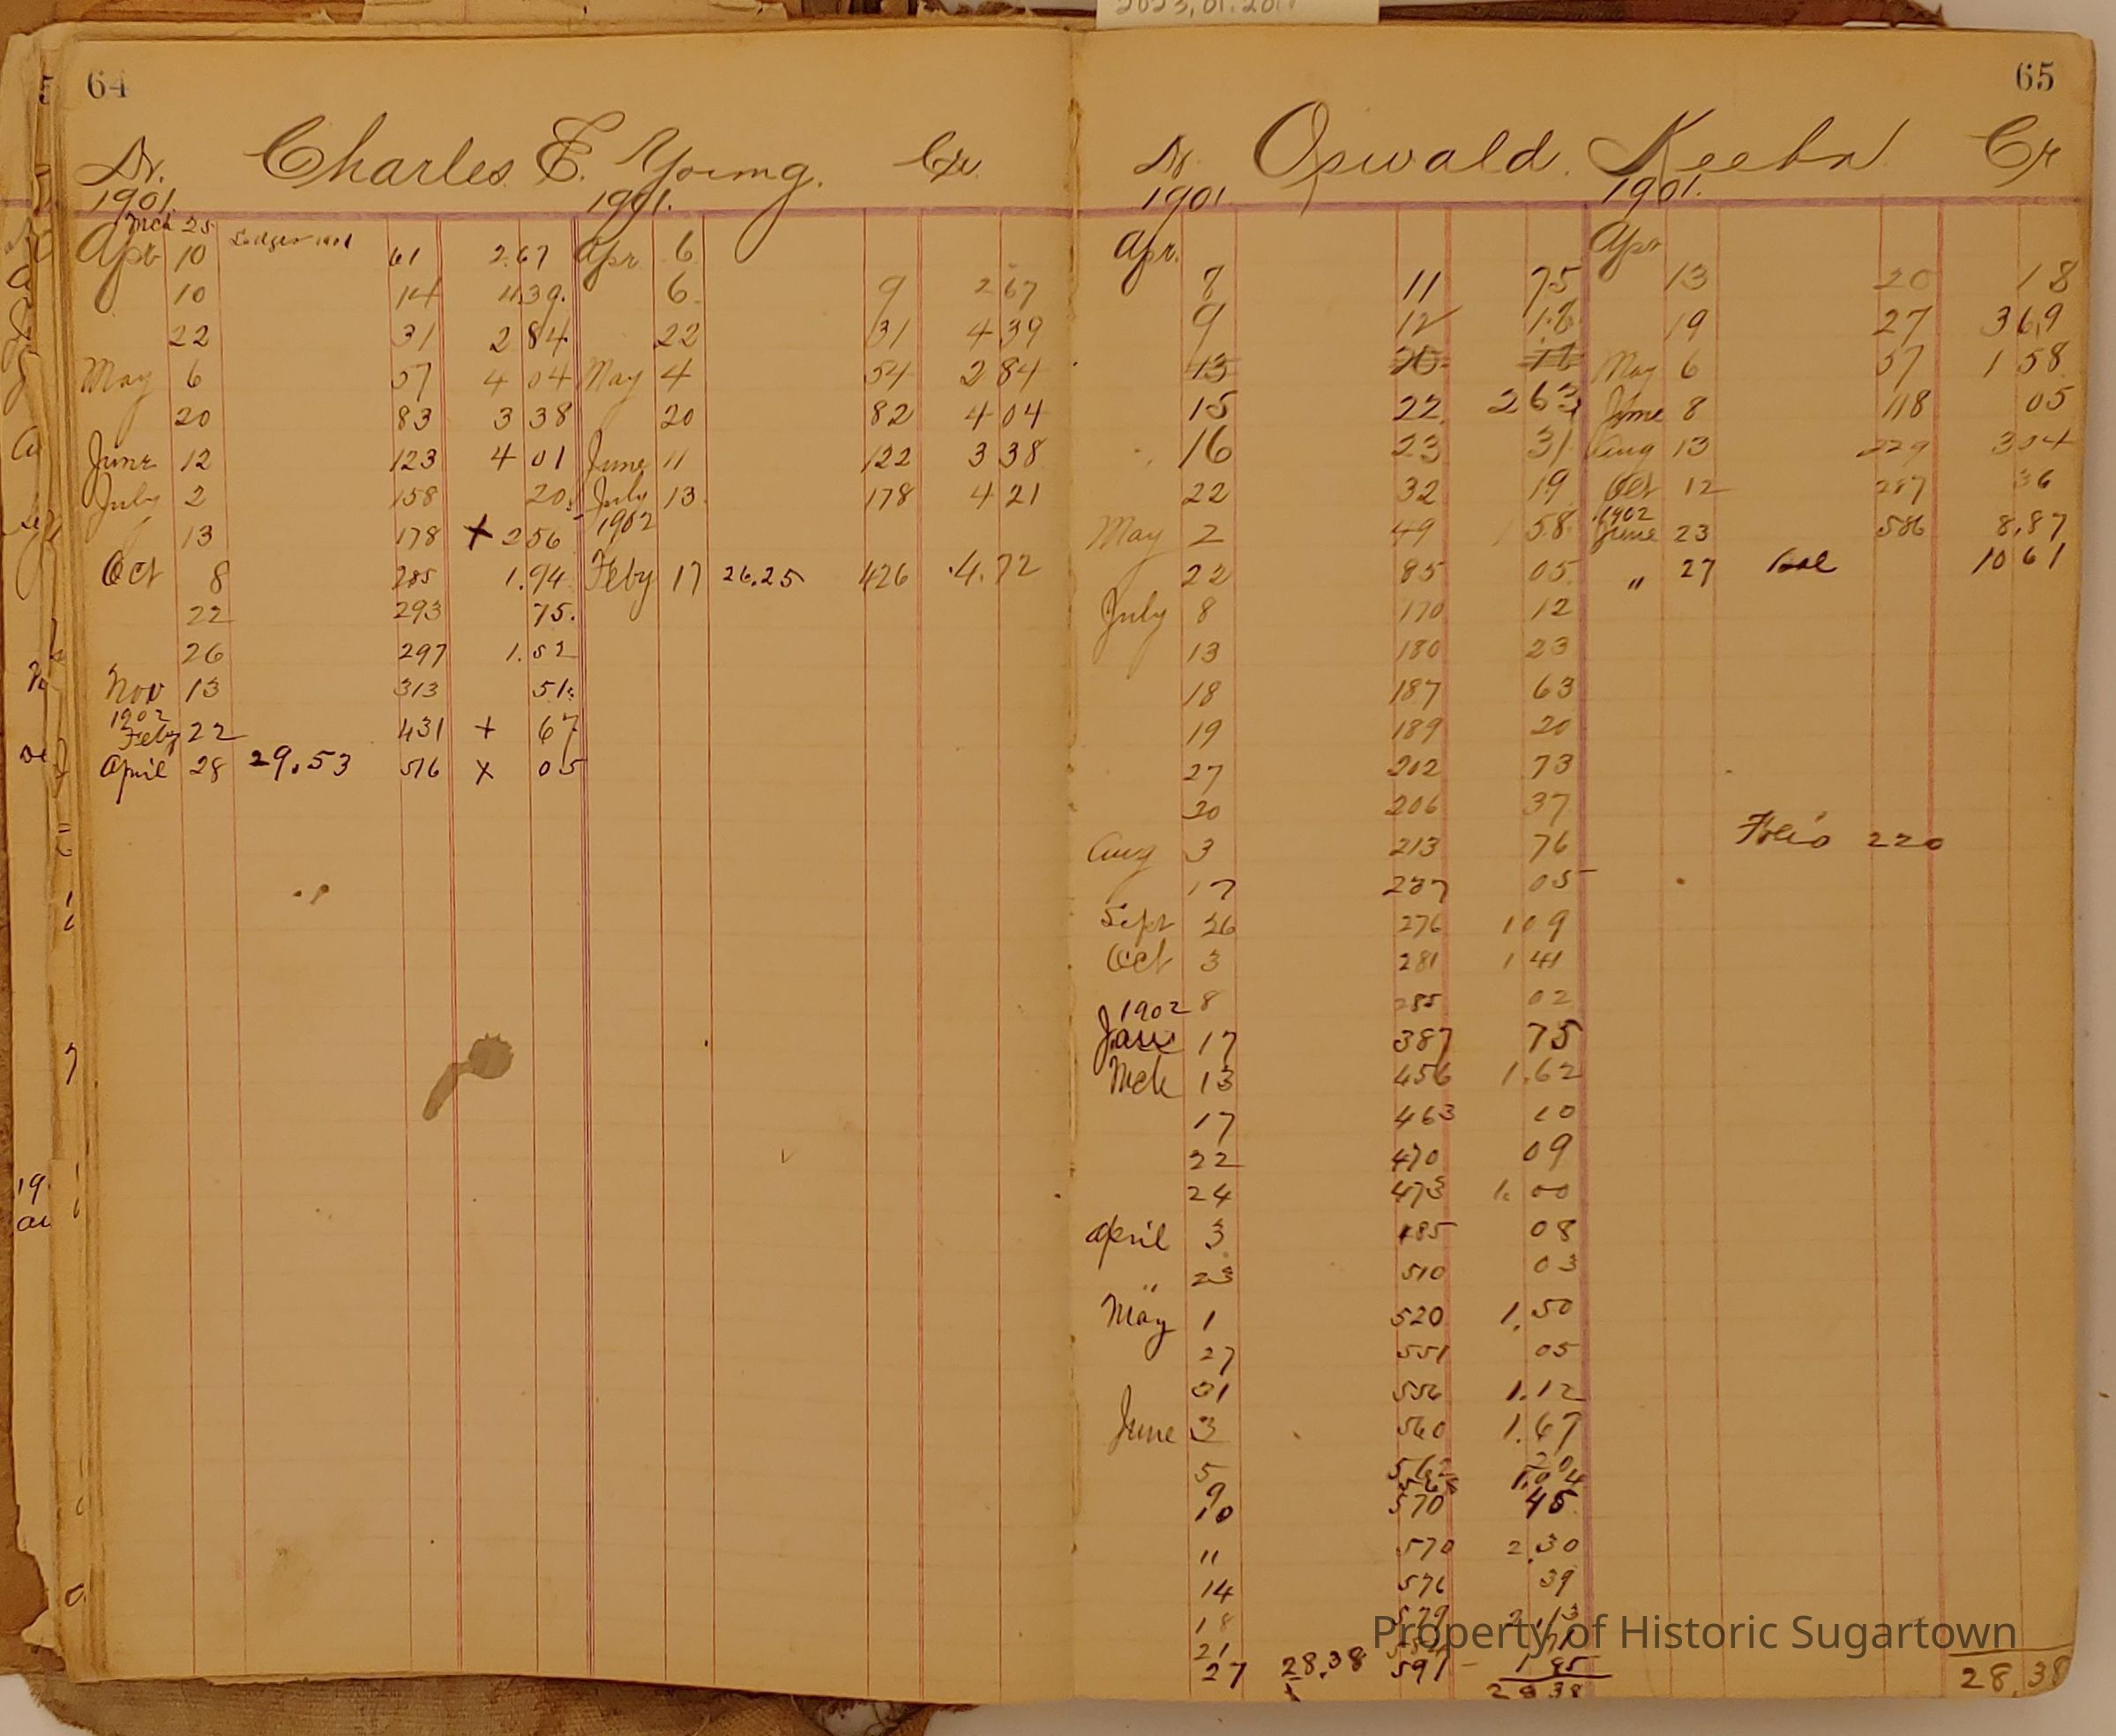 2023.01.20
64
Dr. Charles E. Young. Cr.
1901. 1901.
Mch 25
Apr 10 61 2.67 Apr 6
10 14 4.39. 6. 9 2 67
22 31 2 84 22 31 4 39
May 6 57 4 04 May 4 54 2 84
20 83 3 38 20 82 4 04
June 12 123 4 01 June 11 122 3 38
July 2 158 20 July 13 178 4 21
13 178 + 2 56 1902
Oct 8 285 1.94 Feby 17 26.25 426 4.72
22 293 75.
26 297 1.52
Nov 13 313 51
1902
Feby 22 431 + 67
April 28 29.53 516 x 05
65
Dr. Oswald Keehn Cr
1901 1901.
Apr. Apr
7 11 75 13 20 18
9 12 18 19 27 3 69
13 20 18 May 6 57 1 58
15 22 2 63 June 8 118 05
16 23 31 Aug 13 229 3 04
22 32 19 Oct 12 287 36
May 2 49 1 58 1902 June 23 586 8.87
22 85 05 " 27 Bal 10 61
July 8 170 12
13 180 23
18 187 63
19 189 20
27 202 73
30 206 37
Folio 220
Aug 3 213 76
17 237 05
Sept 26 276 1 09
Oct 3 281 1 41
8 285 02
1902
Jan 17 387 75
Mch 13 456 1.62
17 463 10
22 470 09
24 473 1. 00
April 3 485 08
" 23 510 03
May 1 520 1.50
27 551 05
31 556 1.12
June 3 560 1.67
5 562 20
9 568 1.04
10 570 45
11 570 2.30
14 576 39
18 579 2.13
21 71
27 28.38 591 1 85
28 38 28.38
Property of Historic Sugartown